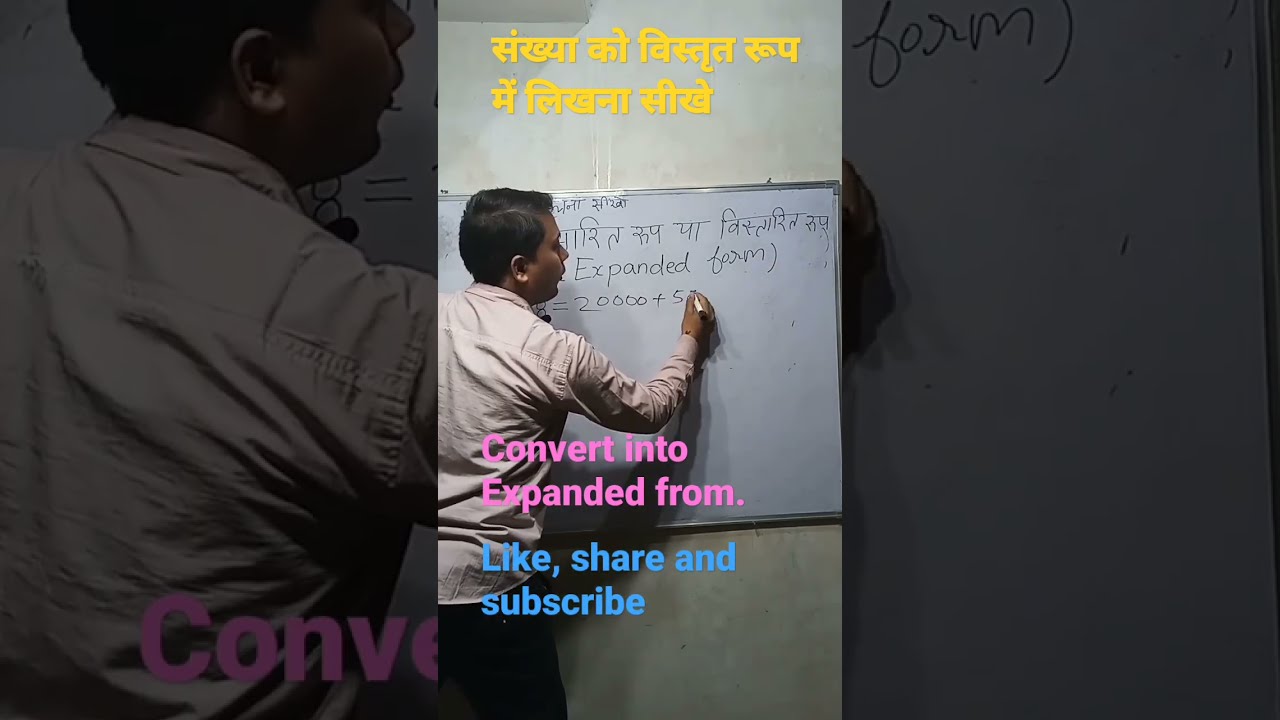 संख्या को विस्तृत रूप
में लिखना सीखे
सीखो
रूप या विस्तारित रूप
Expanded form)
8 = 20000 + 5
Convert into
Expanded from.
Like, share and
subscribe
form)
8 =
Conve